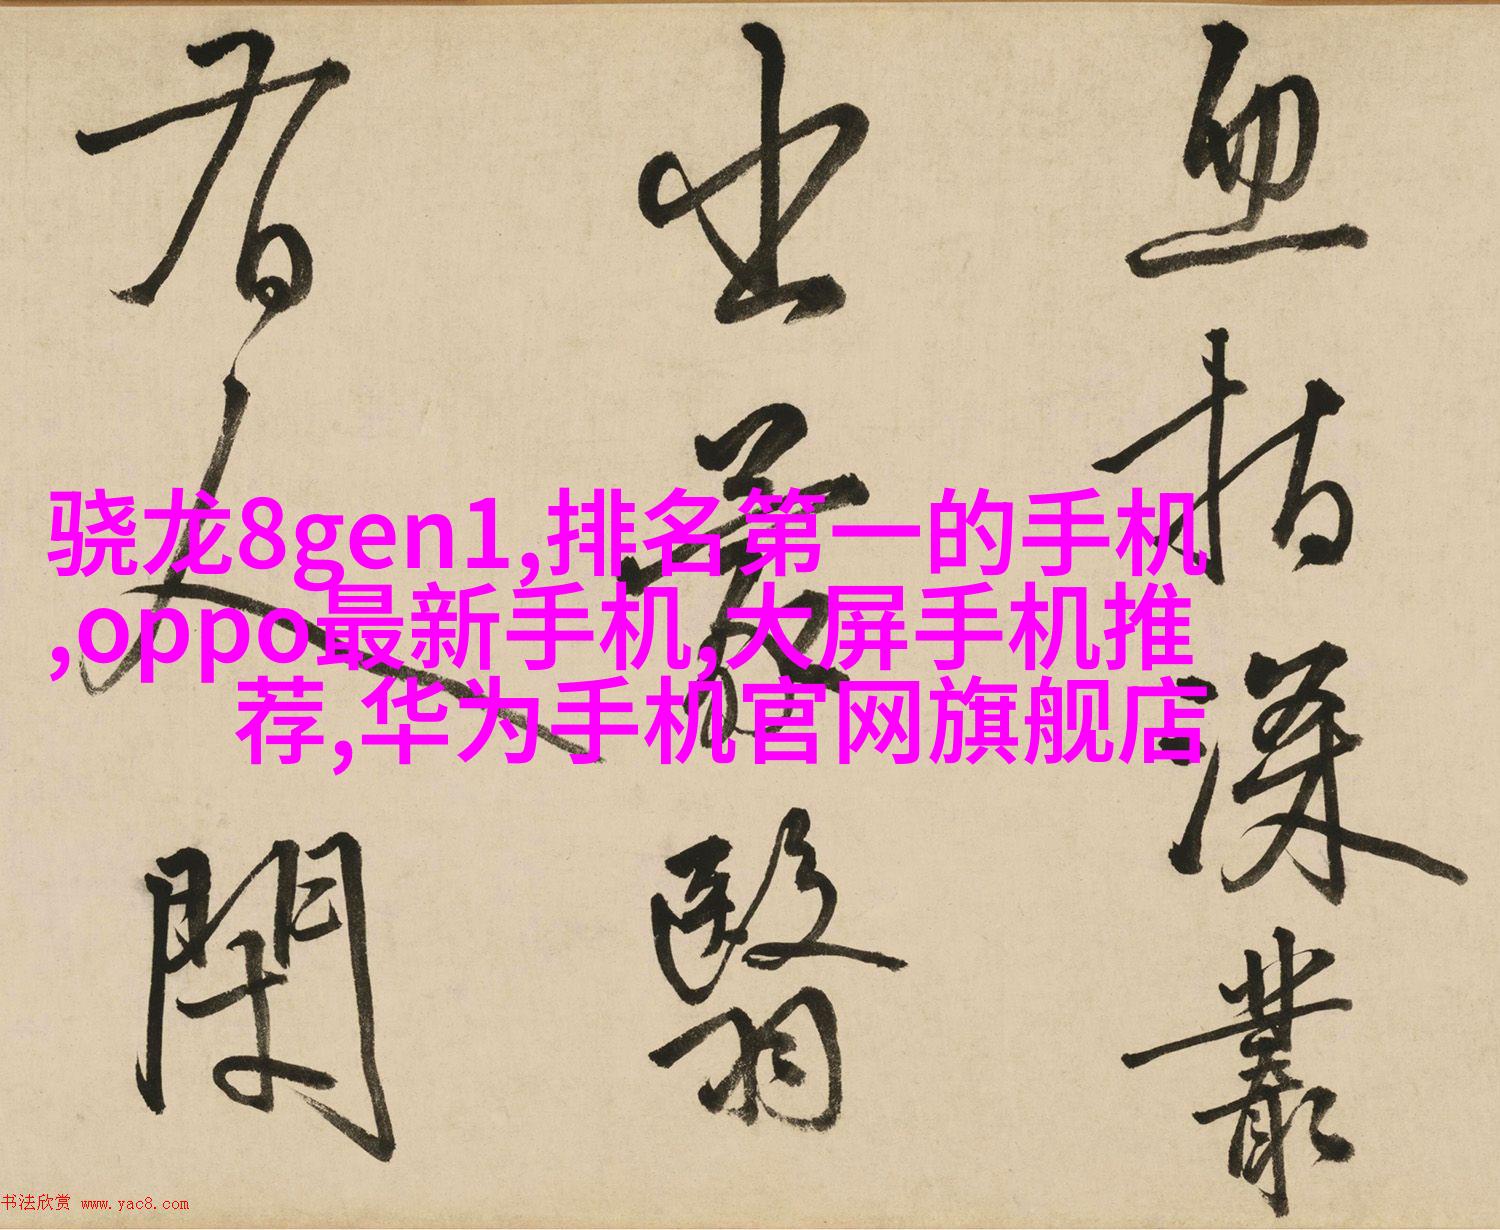 指深叢
出蒙翳
人
骁龙8gen1,排名第一的手机
,oppo最新手机,大屏手机推
荐,华为手机官网旗舰店
书法欣赏 www.yac8.com